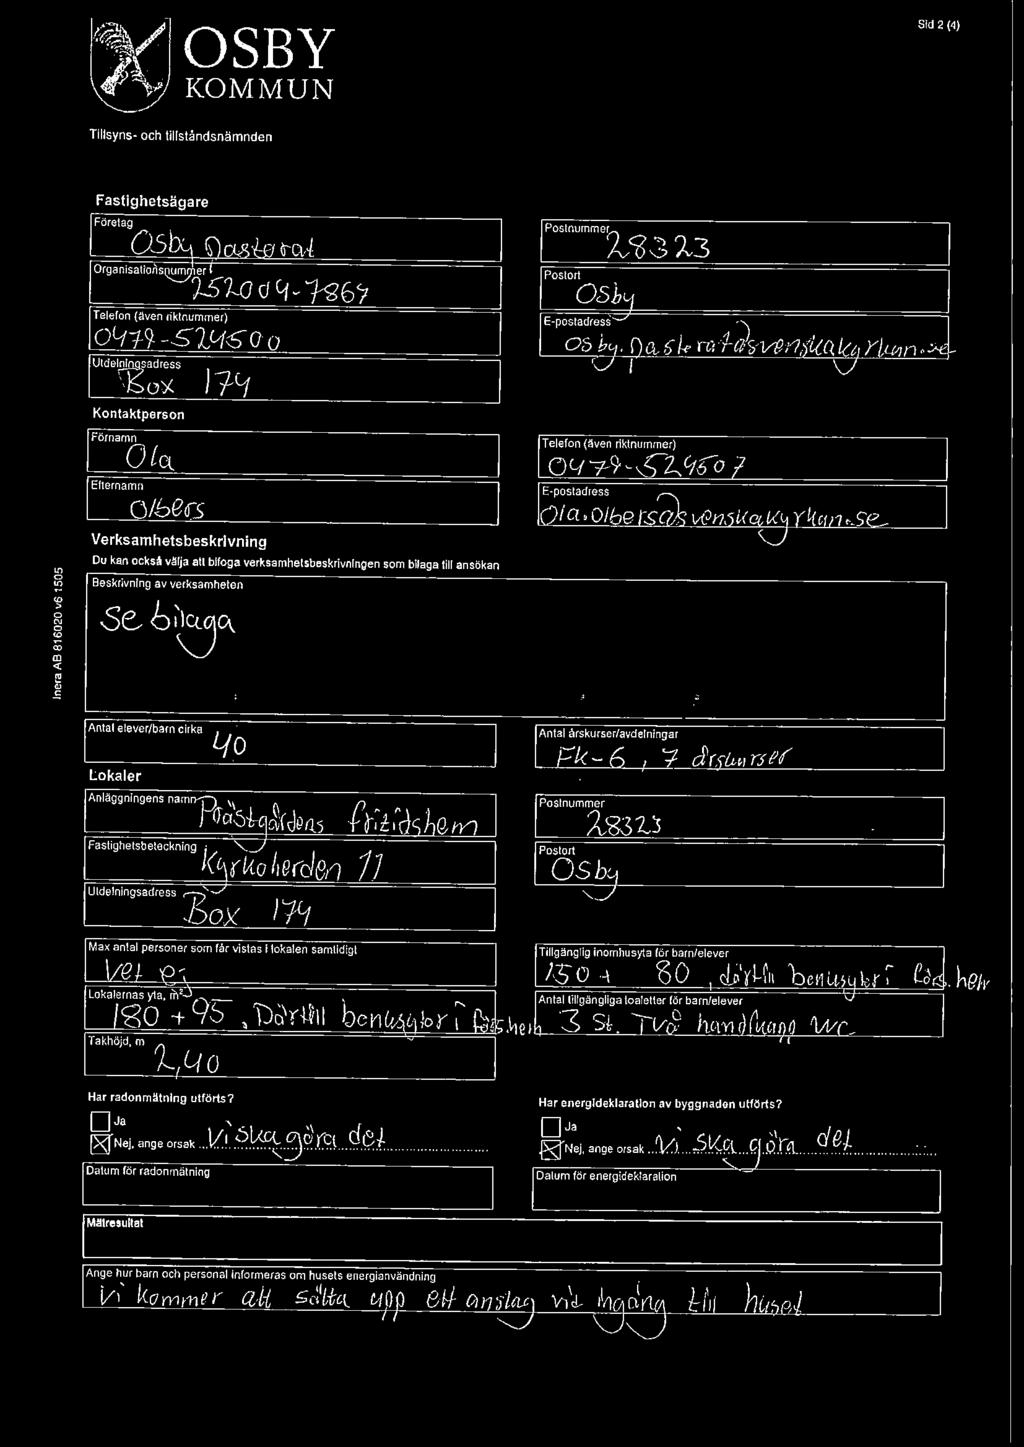 Sid 2 (4)
OSBY
KOMMUN
Tillsyns- och tillståndsnämnden
Fastighetsägare
Företag
Osby Pastorat
Postnummer
28323
Organisationsnummer
252004-7867
Postort
Osby
Telefon (även riktnummer)
0479-524500
E-postadress
osby.pastorat@svenskakyrkan.se
Utdelningsadress
Box 174
Kontaktperson
Förnamn
Ola
Telefon (även riktnummer)
0479-524507
Efternamn
Olbers
E-postadress
Ola.Olbers@svenskakyrkan.se
Verksamhetsbeskrivning
Du kan också välja att bifoga verksamhetsbeskrivningen som bilaga till ansökan
Beskrivning av verksamheten
Se bilaga
Inera AB 816020 v6 1505
Antal elever/barn cirka
40
Antal årskurser/avdelningar
FK-6, 7 årskurser
Lokaler
Anläggningens namn
Prästgårdens fritidshem
Postnummer
28323
Fastighetsbeteckning
Kyrkoherden 11
Postort
Osby
Utdelningsadress
Box 174
Max antal personer som får vistas i lokalen samtidigt
Vet ej
Tillgänglig inomhusyta för barn/elever
150 + 80, därtill bonusytor i förs.hem
Lokalernas yta, m²
180 + 95, Därtill bonusytor i förs.hem
Antal tillgängliga toaletter för barn/elever
3 St. Två handikapp WC
Takhöjd, m
2,40
Har radonmätning utförts?
Ja
Nej, ange orsak Vi ska göra det
Har energideklaration av byggnaden utförts?
Ja
Nej, ange orsak Vi ska göra det
Datum för radonmätning
Datum för energideklaration
Mätresultat
Ange hur barn och personal informeras om husets energianvändning
Vi kommer att sätta upp ett anslag vid ingång till huset